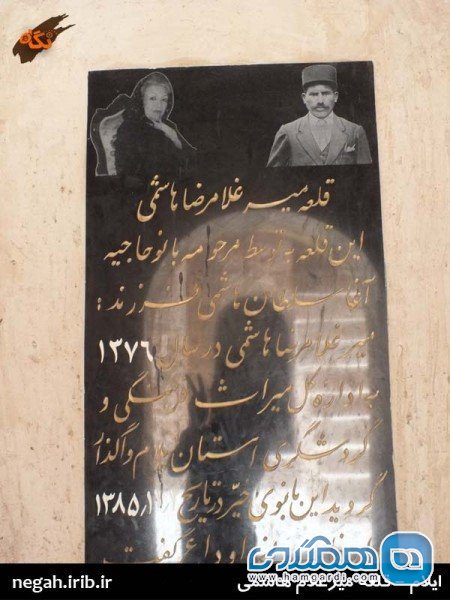 نگاه
قلعه میر غلامرضا هاشمی
این قلعه توسط مرحومه بانو حاجیه
آغا سلطان هاشمی فرزند :
میر غلامرضا هاشمی در سال ۱۳۷۶
به اداره کل میراث فرهنگی و
گردشگری استان ایلام واگذار
گردید این بانوی خیر در تاریخ ۱۳۸۵٫۱
وداع گفت
همگردی
www.hamgardi.com
negah.irib.ir
ایلام - قلعه میرغلام هاشمی